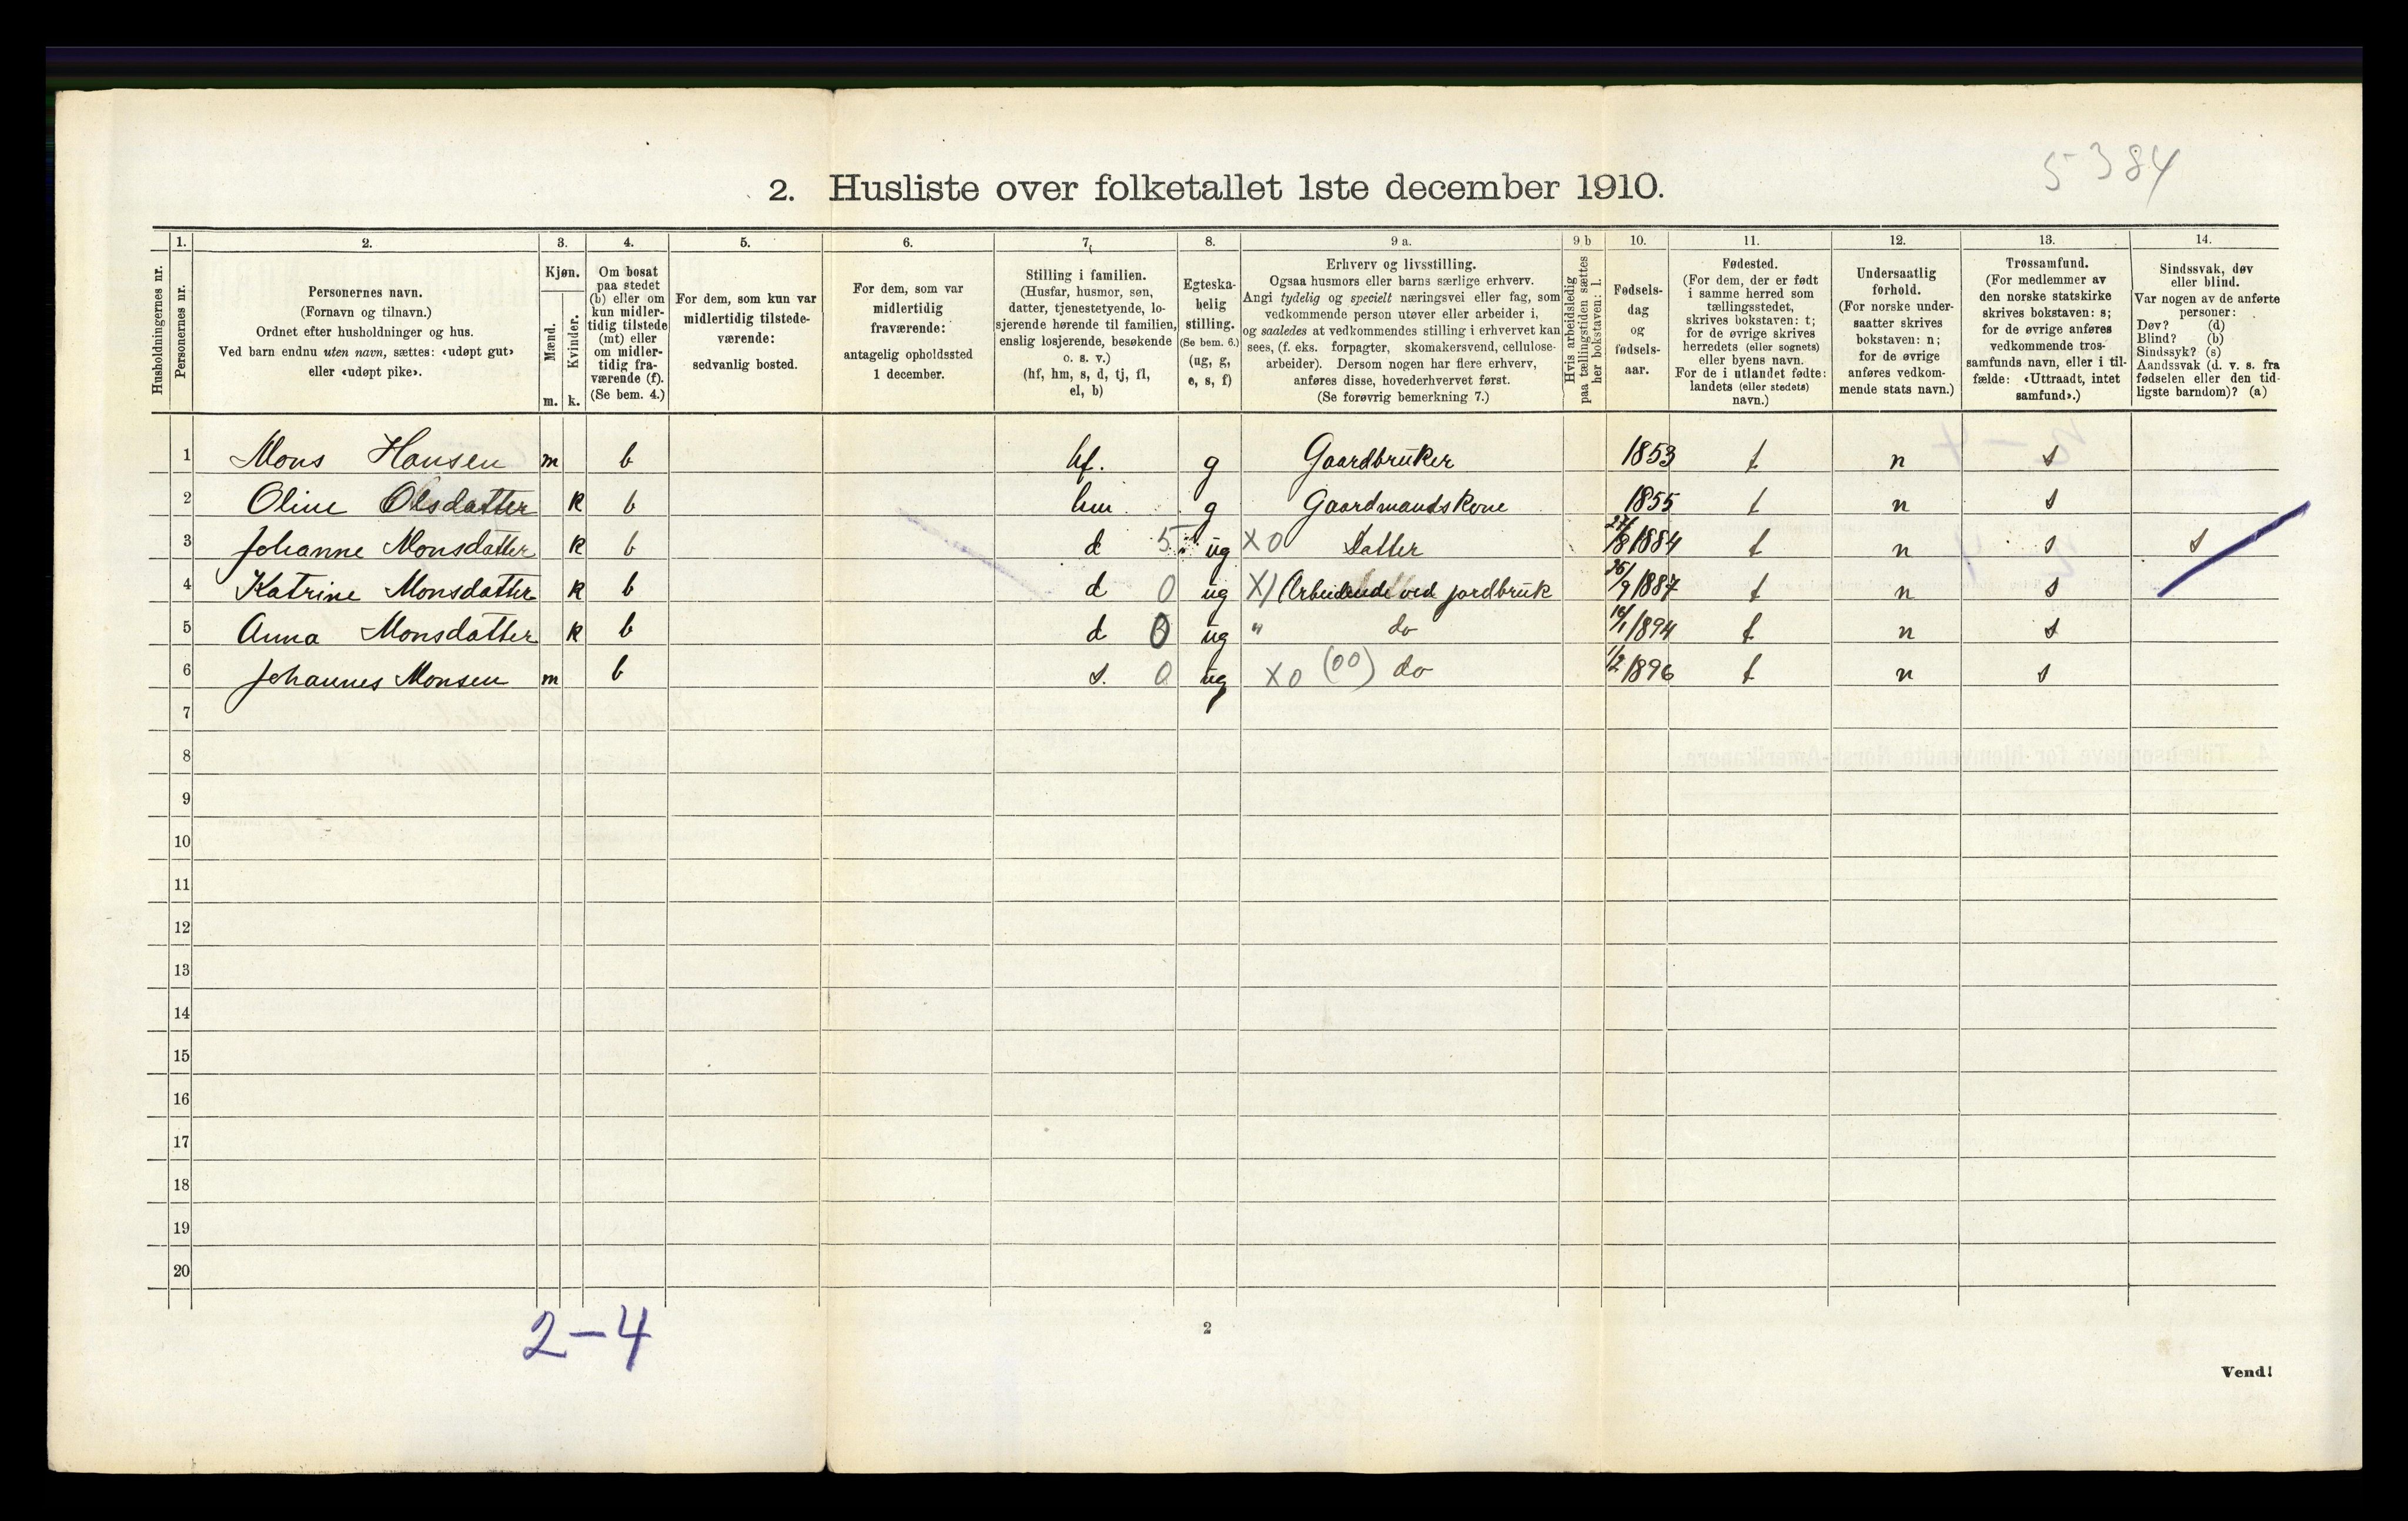 5384
2. Husliste over folketallet 1ste december 1910.
Husholdningernes nr.
1.
Personernes nr.
2.
Personernes navn.
(Fornavn og tilnavn.)
Ordnet efter husholdninger og hus.
Ved barn endnu uten navn, sættes: «udøpt gut»
eller «udøpt pike».
3.
Kjøn.
Mænd.
Kvinder.
m. k.
4.
Om bosat
paa stedet
(b) eller om
kun midler-
tidig tilstede
(mt) eller
om midler-
tidig fra-
værende (f).
(Se bem. 4.)
5.
For dem, som kun var
midlertidig tilstede-
værende:
sedvanlig bosted.
6.
For dem, som var
midlertidig
fraværende:
antagelig opholdssted
1 december.
7.
Stilling i familien.
(Husfar, husmor, søn,
datter, tjenestetyende, lo-
sjerende hørende til familien,
enslig losjerende, besøkende
o. s. v.)
(hf, hm, s, d, tj, fl,
el, b)
8.
Egteska-
belig
stilling.
(Se bem. 6.)
(ug, g,
e, s, f)
9 a.
Erhverv og livsstilling.
Ogsaa husmors eller barns særlige erhverv.
Angi tydelig og specielt næringsvei eller fag, som
vedkommende person utøver eller arbeider i,
og saaledes at vedkommendes stilling i erhvervet kan
sees, (f. eks. forpagter, skomakersvend, cellulose-
arbeider). Dersom nogen har flere erhverv,
anføres disse, hovederhvervet først.
(Se forøvrig bemerkning 7.)
9 b
Hvis arbeidsledig
paa tællingstiden sættes
her bokstaven: l.
10.
Fødsels-
dag
og
fødsels-
aar.
11.
Fødested.
(For dem, der er født
i samme herred som
tællingsstedet,
skrives bokstaven: t;
for de øvrige skrives
herredets (eller sognets)
eller byens navn.
For de i utlandet fødte:
landets (eller stedets)
navn.)
12.
Undersaatlig
forhold.
(For norske under-
saatter skrives
bokstaven: n;
for de øvrige
anføres vedkom-
mende stats navn.)
13.
Trossamfund.
(For medlemmer av
den norske statskirke
skrives bokstaven: s;
for de øvrige anføres
vedkommende tros-
samfunds navn, eller i til-
fælde: «Uttraadt, intet
samfund».)
14.
Sindssvak, døv
eller blind.
Var nogen av de anførte
personer:
Døv? (d)
Blind? (b)
Sindssyk? (s)
Aandssvak (d. v. s. fra
fødselen eller den tid-
ligste barndom)? (a)
1 Mons Hansen m b hf. g Gaardbruker 1853 t n s
2 Oline Olsdatter k b hm g Gaardmandskone 1855 t n s
3 Johanne Monsdatter k b d 5 ug X0 Datter 27/8 1884 t n s s
4 Katrine Monsdatter k b d 0 ug X) Arbeidende ved jordbruk 25/9 1887 t n s
5 Anna Monsdatter k b d 0 ug " do 16/1 1894 t n s
6 Johannes Monsen m b s. 0 ug X0 (00) do 1/2 1896 t n s
7
8
9
10
11
12
13
14
15
16
17
18
19
20
2-4
2
Vend!